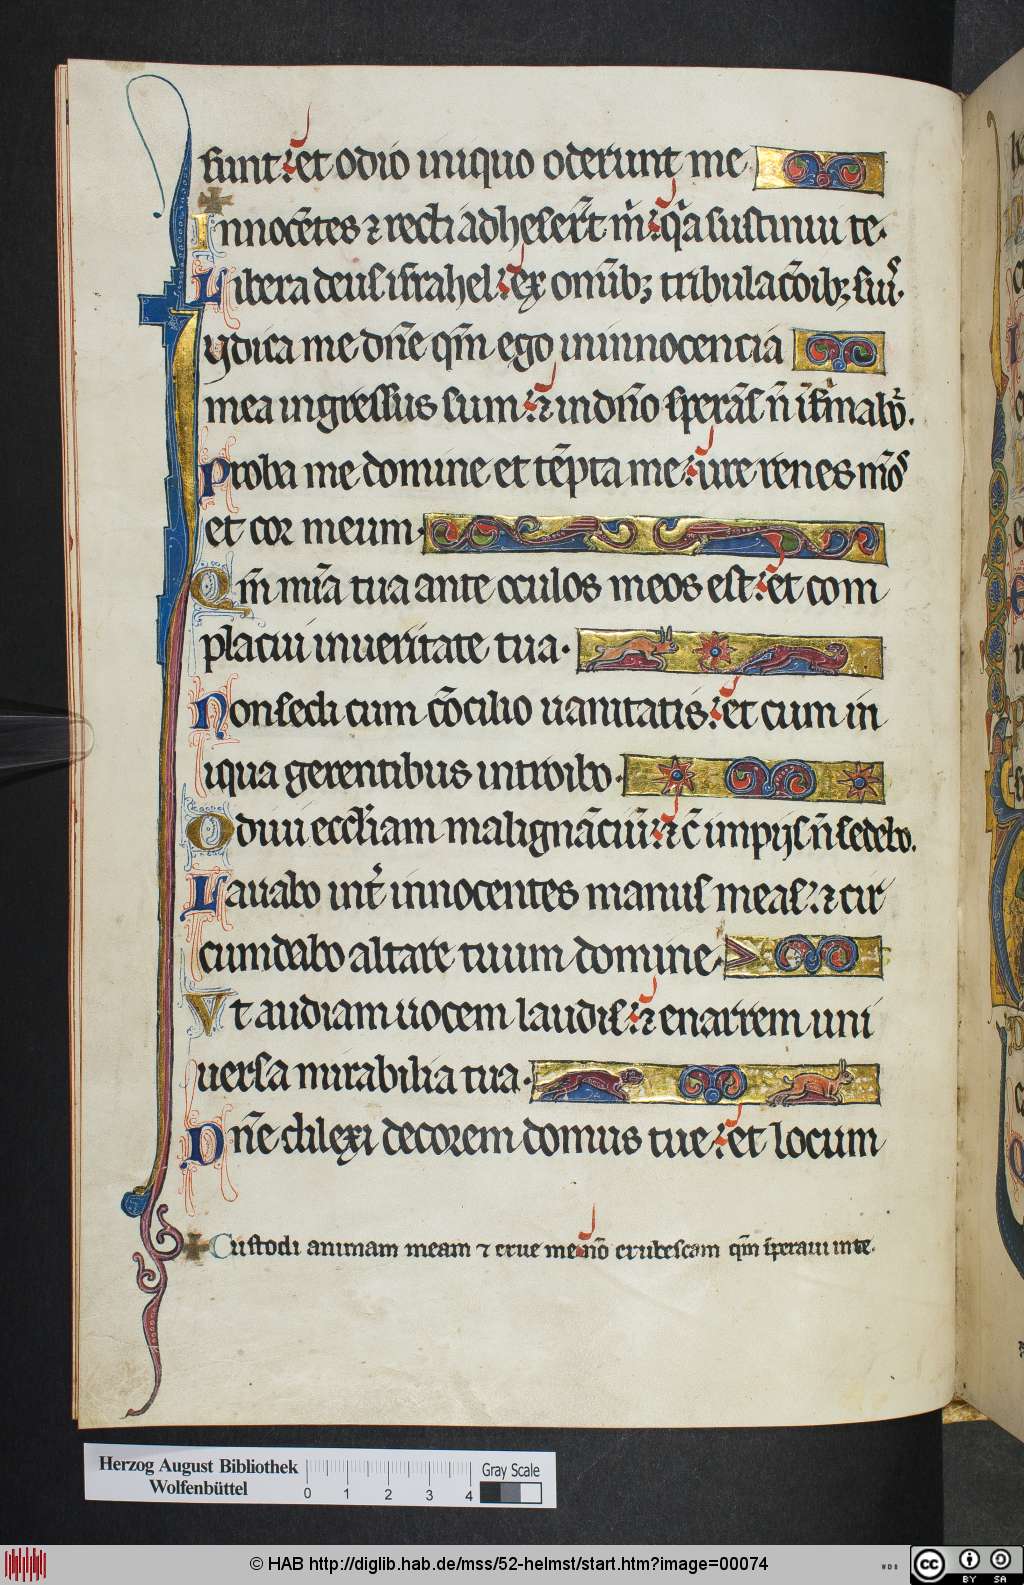 sunt: et odio iniquo oderunt me
Innocētes ⁊ recti adheser̄t m̄: q̄a sustinui te.
Libera deus israhel: ex om̄ib; tribulac̄oib; suis
Iudica me dn̄e qm̄ ego ininnocencia
mea ingressus sum: ⁊ indn̄o sperās n̄ īfirmabor.
Proba me domine et tēpta me: ure renes m̄os
et cor meum.
Qm̄ mīa tua ante oculos meos est: et com
placui inueritate tua.
Non sedi cum cōcilio uanitatis: et cum in
iqua gerentibus introibo.
Odiui eccl̄iam malignāciū: ⁊ c̄ impijs n̄ sedebo.
Lauabo int̄ innocentes manus meas: ⁊ cir
cumdabo altare tuum domine.
Vt audiam uocem laudis: ⁊ enarrem uni
uersa mirabilia tua.
Dn̄e dilexi decorem domus tue: et locum
Custodi animam meam ⁊ erue me: nō erubescam qm̄ speraui inte.
Herzog August Bibliothek
Wolfenbüttel
0 1 2 3 4
Gray Scale
© HAB http://diglib.hab.de/mss/52-helmst/start.htm?image=00074
WDB
cc BY SA